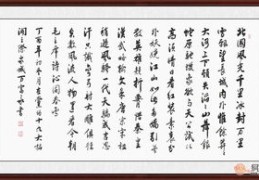 北國風光千里冰封萬里
雪飄望長城内外惟餘莽
大河上下頓失滔滔山舞銀
蛇原馳蠟象欲與天公試比
高須晴日看紅裝素裹分
外妖嬈江山如此多嬌引無
數英雄競折腰惜秦皇
漢武略輸文采唐宗宋祖
稍遜風騷一代天驕成吉思
汗只識彎弓射大雕俱往
矣數風流人物還看今朝
毛主席詩沁園春雪
丁酉年
書